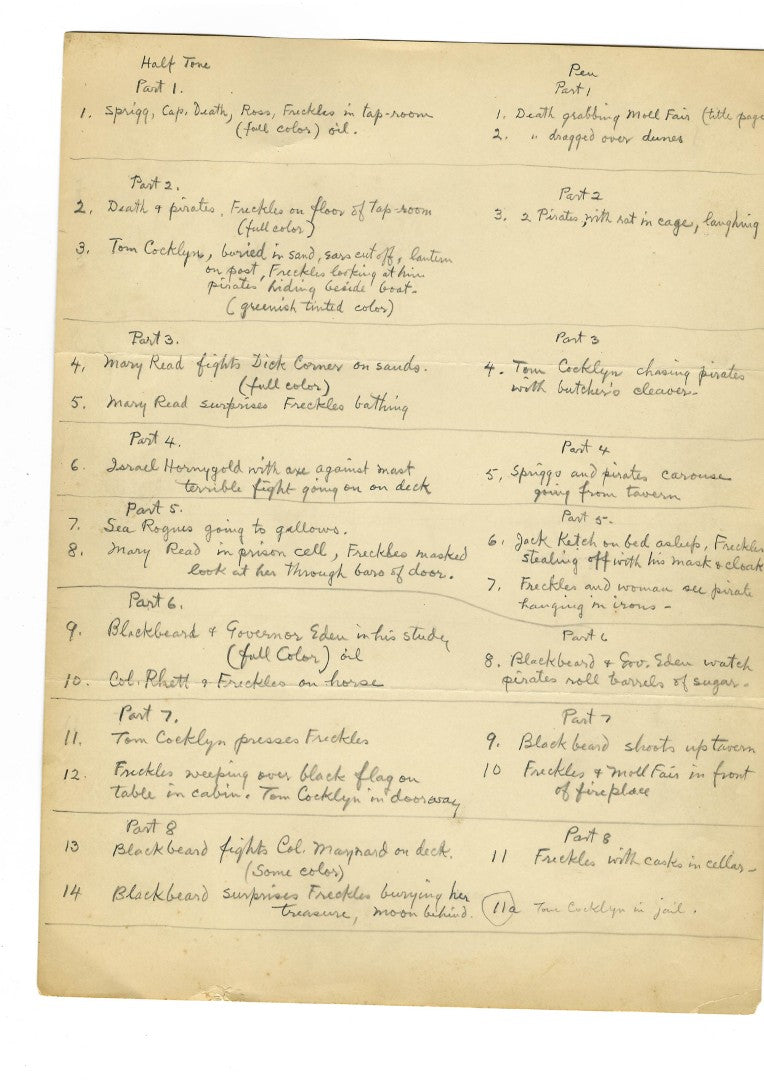 Half Tone
Part 1.
1. Sprigg, Cap. Death, Ross, Freckles in tap-room
(full color) oil.
Part 2.
2. Death & pirates, Freckles on floor of tap-room
(full color)
3. Tom Cocklyn, buried in sand, ears cut off, lantern
on post, Freckles looking at him
pirates hiding beside boat.
(greenish tinted color)
Part 3.
4. Mary Read fights Dick Corner on sands.
(full color)
5. Mary Read surprises Freckles bathing
Part 4.
6. Israel Hornygold with axe against mast
terrible fight going on on deck
Part 5.
7. Sea Rogues going to gallows.
8. Mary Read in prison cell, Freckles masked
look at her through bars of door.
Part 6.
9. Blackbeard & Governor Eden in his study
(full Color) oil
10. Col. Rhett & Freckles on horse
Part 7.
11. Tom Cocklyn presses Freckles
12. Freckles weeping over black flag on
table in cabin. Tom Cocklyn in doorway
Part 8
13 Blackbeard fights Col. Maynard on deck.
(Some color)
14 Blackbeard surprises Freckles burying her
treasure, moon behind.
Pen
Part 1
1. Death grabbing Moll Fair (title page
2. " dragged over dunes
Part 2
3. 2 Pirates, with rat in cage, laughing
Part 3
4. Tom Cocklyn chasing pirates
with butcher's cleaver-
Part 4
5, Spriggs and pirates carouse
going from tavern
Part 5.
6. Jack Ketch on bed asleep, Freckles
stealing off with his mask & cloak
7. Freckles and woman see pirate
hanging in irons -
Part 6
8. Blackbeard & Gov. Eden watch
pirates roll barrels of sugar-
Part 7
9. Blackbeard shoots up tavern
10 Freckles & Moll Fair in front
of fireplace
Part 8
11 Freckles with casks in cellar-
11a Tom Cocklyn in jail.